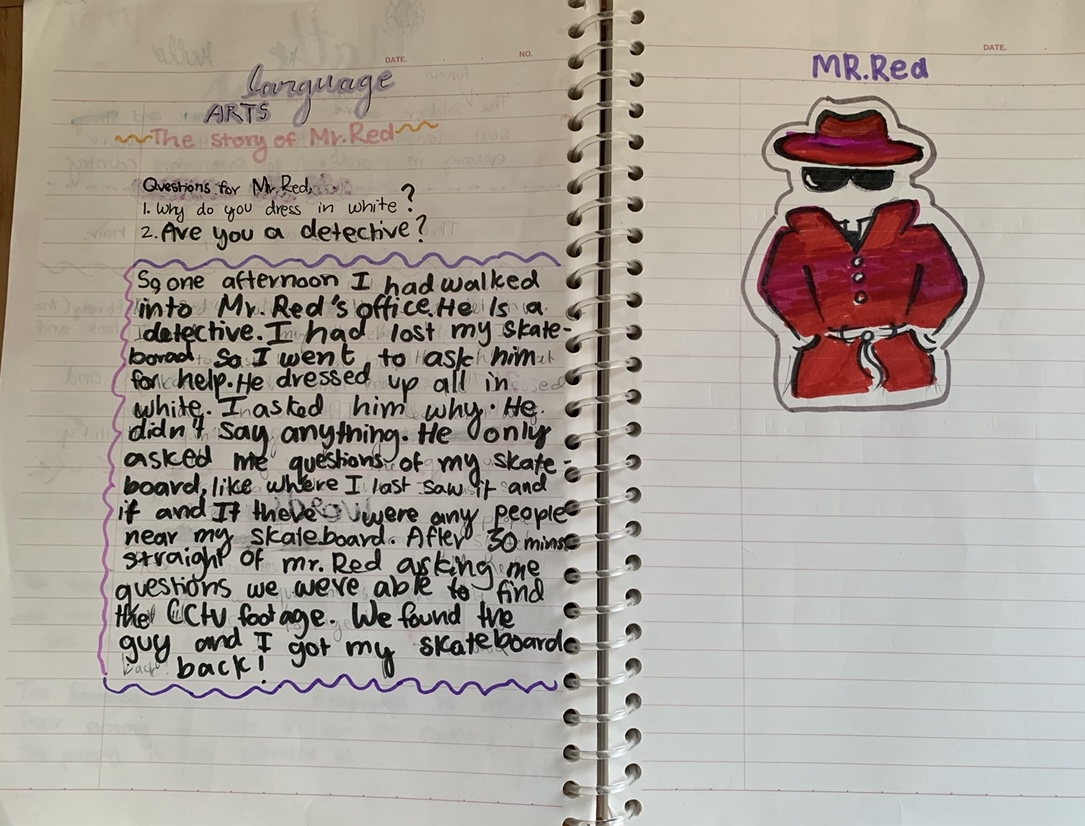 DATE.
NO.
language
ARTS
The story of Mr.Red
Questions for Mr.Red,
1. Why do you dress in white?
2. Are you a detective?
So one afternoon I had walked
into Mr. Red's office. He Is a
detective. I had lost my skate-
borad So I went to ask him
for help. He dressed up all in
white. I asked him why. He
didn't say anything. He only
asked me questions of my skate-
board, like where I last saw it and
if and If there were any people
near my skateboard. After 30 mins
straight of mr. Red asking me
questions we were able to find
the CCtv footage. We found the
guy and I got my skateboard
back!
DATE.
MR.Red